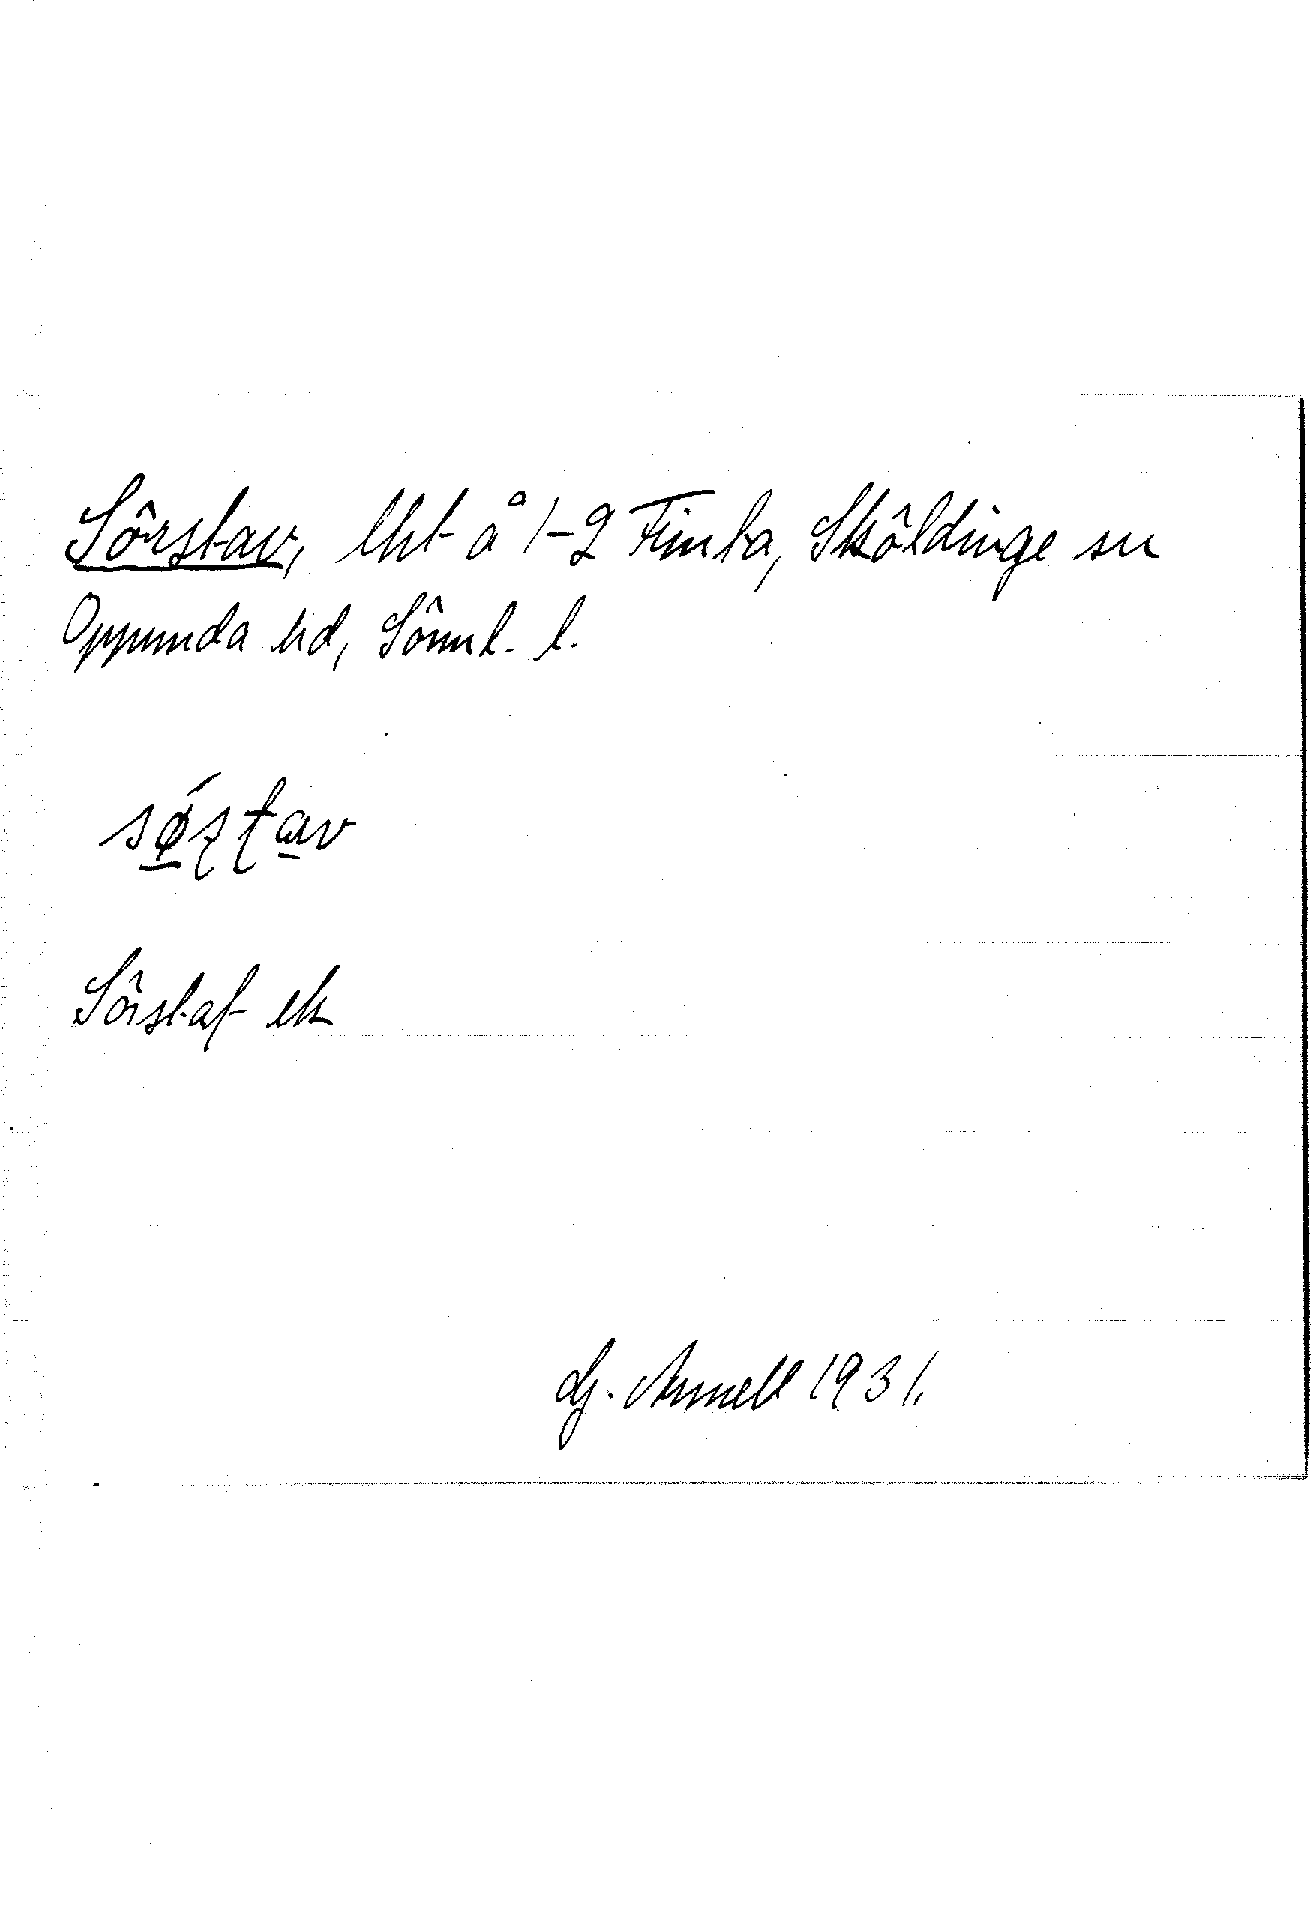 Sörstav, lht å 1-2 Fimta, Sköldinge sn
Oppunda hd, Söml. l.
sǿ̱ʂʈa̱v
Sörstaf ek
G. Arnell 1931.